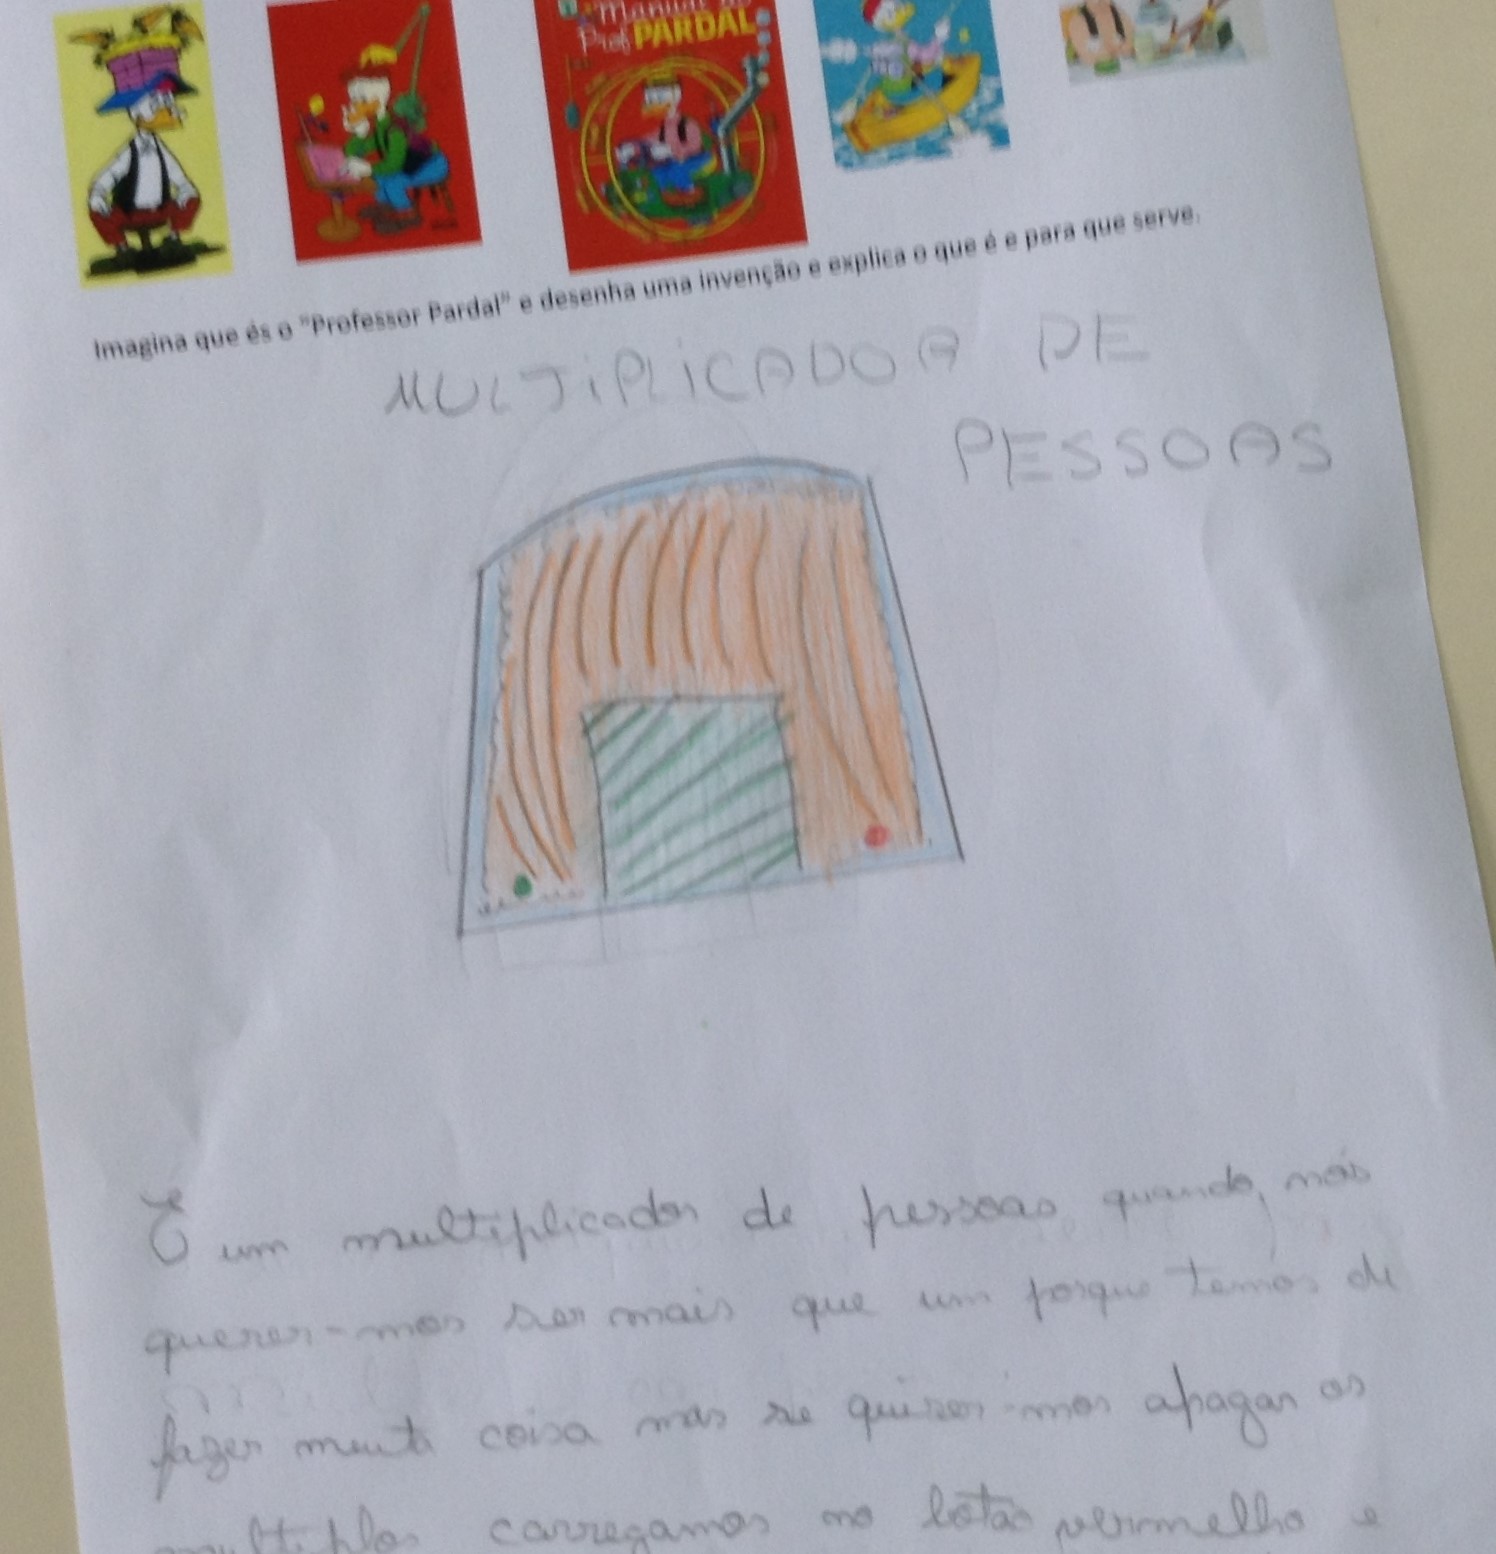 Manual do
Prof PARDAL
Imagina que és o "Professor Pardal" e desenha uma invenção e explica o que é e para que serve.
MULTIPLICADOR DE
PESSOAS
É um multiplicador de pessoas quando, nós
querer-mos ser mais que um porque temos de
fazer muita coisa mas se quiser-mos apagar os
multiplos carregamos no botão vermelho e